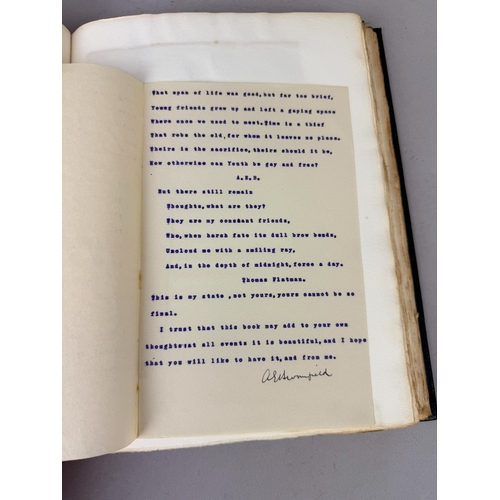 That span of life was good, but far too brief,
Young friends grew up and left a gaping space
Where once we used to meet. Time is a thief
That robs the old, for whom it leaves no place.
Theirs is the sacrifice, theirs should it be,
How otherwise can Youth be gay and free?
But there still remain
Thoughts, what are they?
They are my constant friends,
Who, when harsh fate its dull brow bends,
Uncloud me with a smiling ray,
And, in the depth of midnight, force a day.
Thomas Flatman.
This is my state, not yours, yours cannot be so
final.
I trust that this book may add to your own
thoughts: at all events it is beautiful, and I hope
that you will like to have it, and from me.